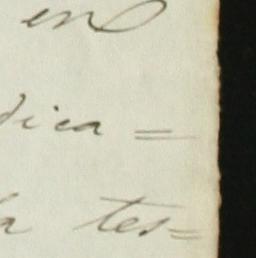 en
dica=
a tes=